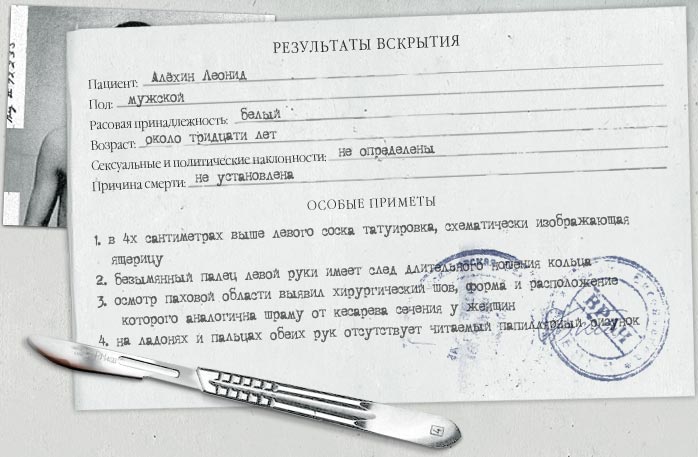 РЕЗУЛЬТАТЫ ВСКРЫТИЯ
Пациент: Алёхин Леонид
Пол: мужской
Расовая принадлежность: белый
Возраст: около тридцати лет
Сексуальные и политические наклонности: не определены
Причина смерти: не установлена
ОСОБЫЕ ПРИМЕТЫ
1. в 4х сантиметрах выше левого соска татуировка, схематически изображающая
ящерицу
2. безымянный палец левой руки имеет след длительного ношения кольца
3. осмотр паховой области выявил хирургический шов, форма и расположение
которого аналогична шраму от кесарева сечения у женщин
4. на ладонях и пальцах обеих рук отсутствует читаемый папиллярный рисунок
ВРАЧ
4